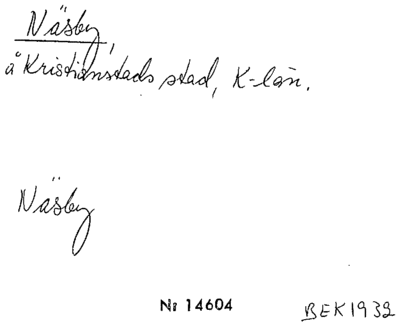 Näsby,
å Kristianstads stad, K-län.
Näsby
Nr 14604
BEK1932